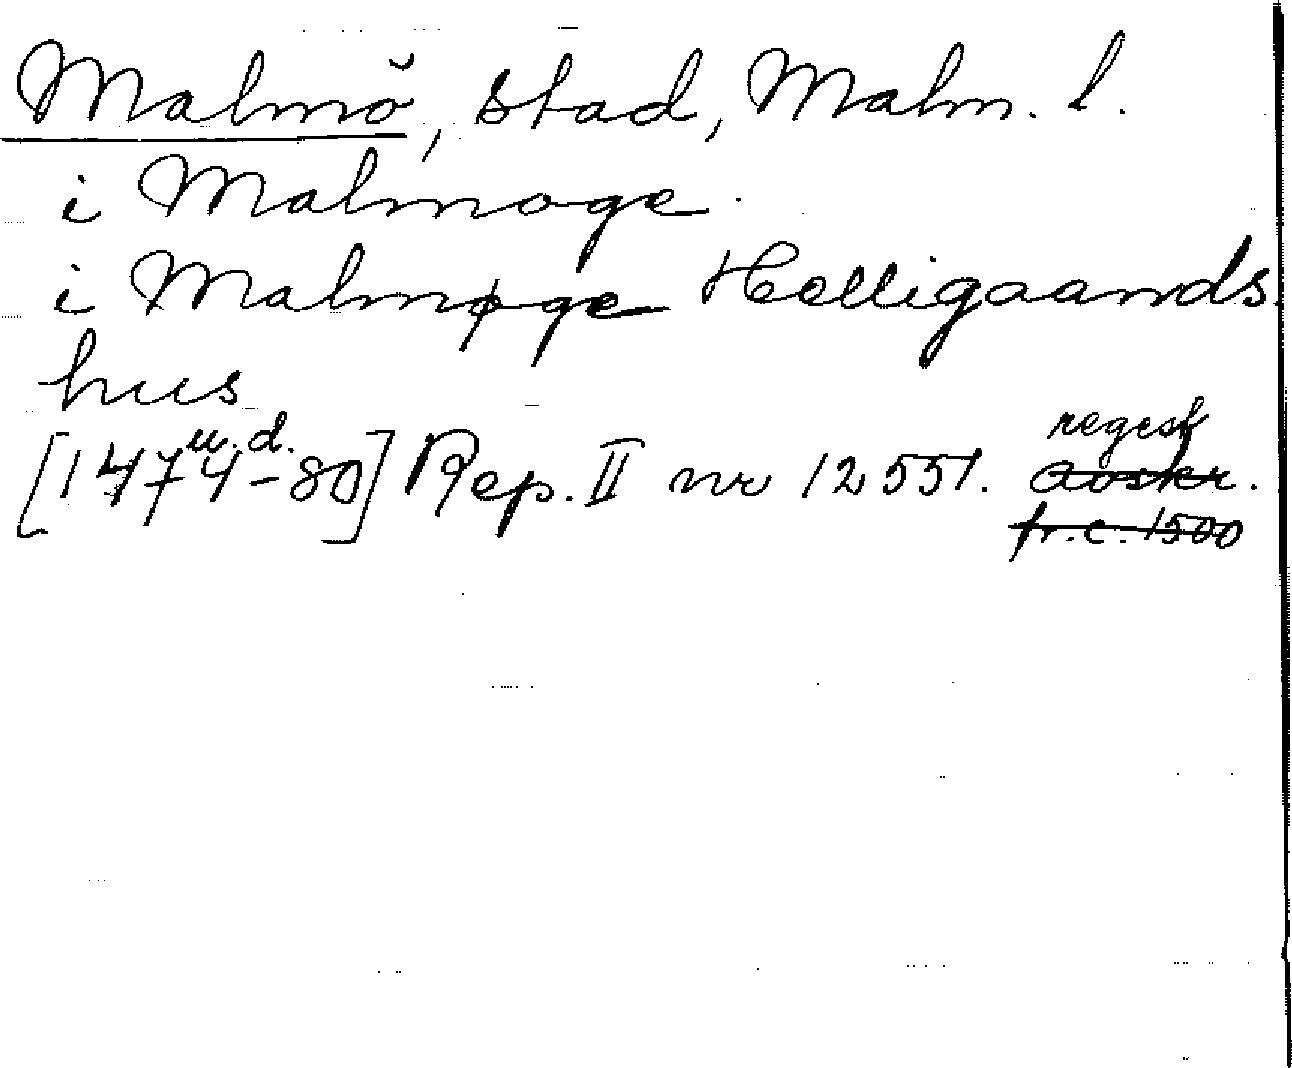 Malmö, stad, Malm. l.
i Malmoge.
i Malmøge Helligaands
hus
u. d. regest
[1474-80] Rep. II nr 12551. avskr.
fr. c. 1500